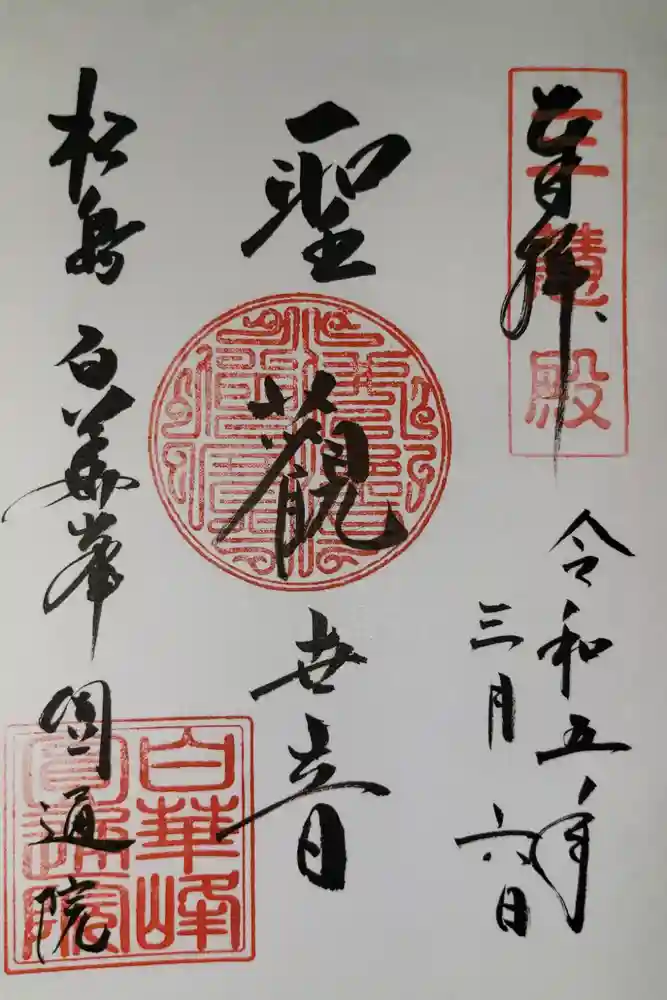 拝
三慧殿
令和五年
三月六日
聖觀世音
松島 白華峯 圓通院
白華峰
圓通院